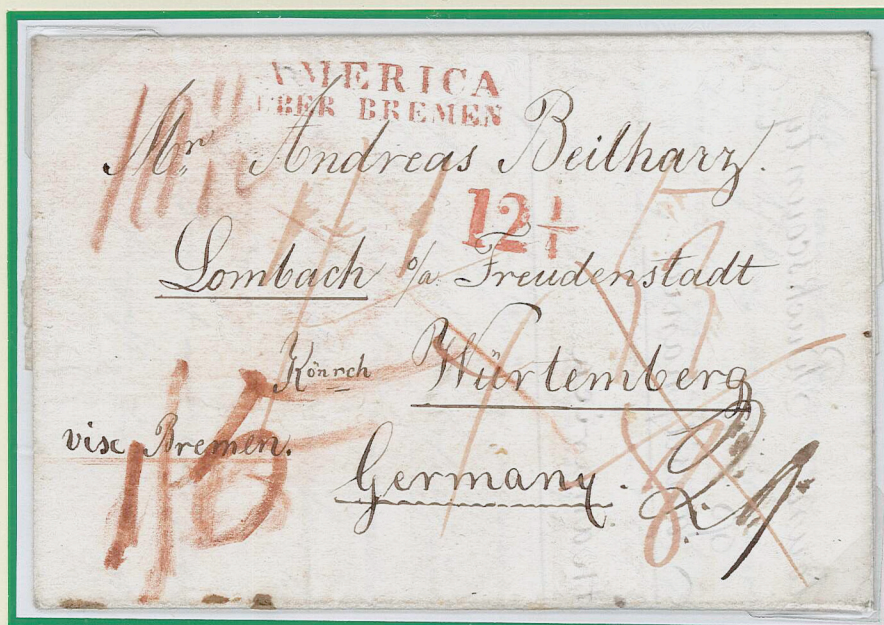 AMERICA
UEBER BREMEN
Mr. Andreas Beilharz.
12 1/4
Lombach o/a Freudenstadt
Könrch Würtemberg
vise Bremen.
Germany.